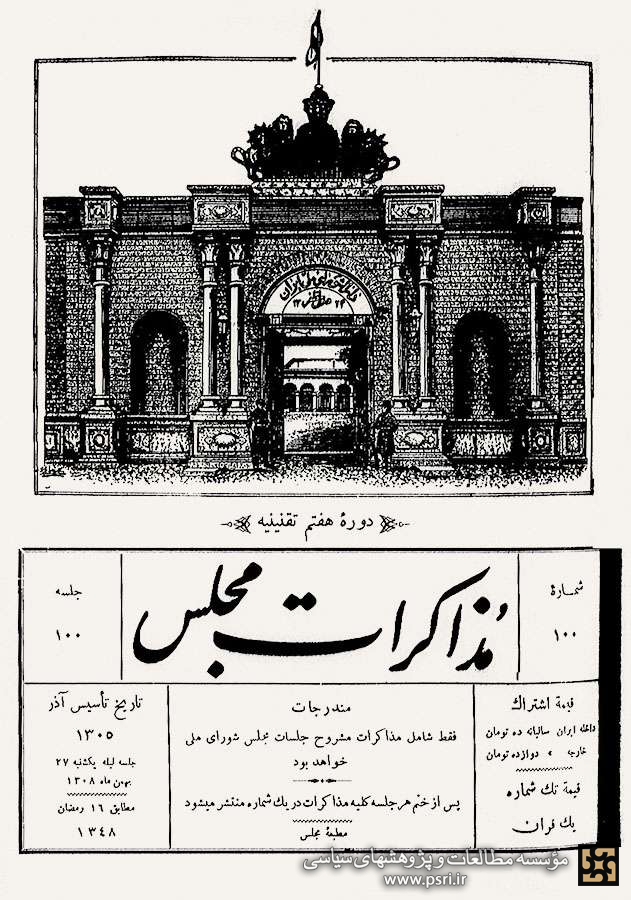 دورهٔ هفتم تقنینیه
شمارهٔ
۱۰۰
مذاکرات مجلس
جلسه
۱۰۰
قیمة اشتراك
داخله ایران سالیانه ده تومان
خارجه » دوازده تومان
قیمة تك شماره
یك قران
مندرجات
فقط شامل مذاکرات مشروح جلسات مجلس شورای ملی
خواهد بود
پس از ختم هر جلسه کلیه مذاکرات در یك شماره منتشر میشود
مطبعهٔ مجلس
تاریخ تأسیس آذر
۱۳۰۵
جلسه لیله یکشنبه ۲۷
بهمن ماه ۱۳۰۸
مطابق ۱۶ رمضان
۱۳٤۸
مؤسسه مطالعات و پژوهشهای سیاسی
www.psri.ir